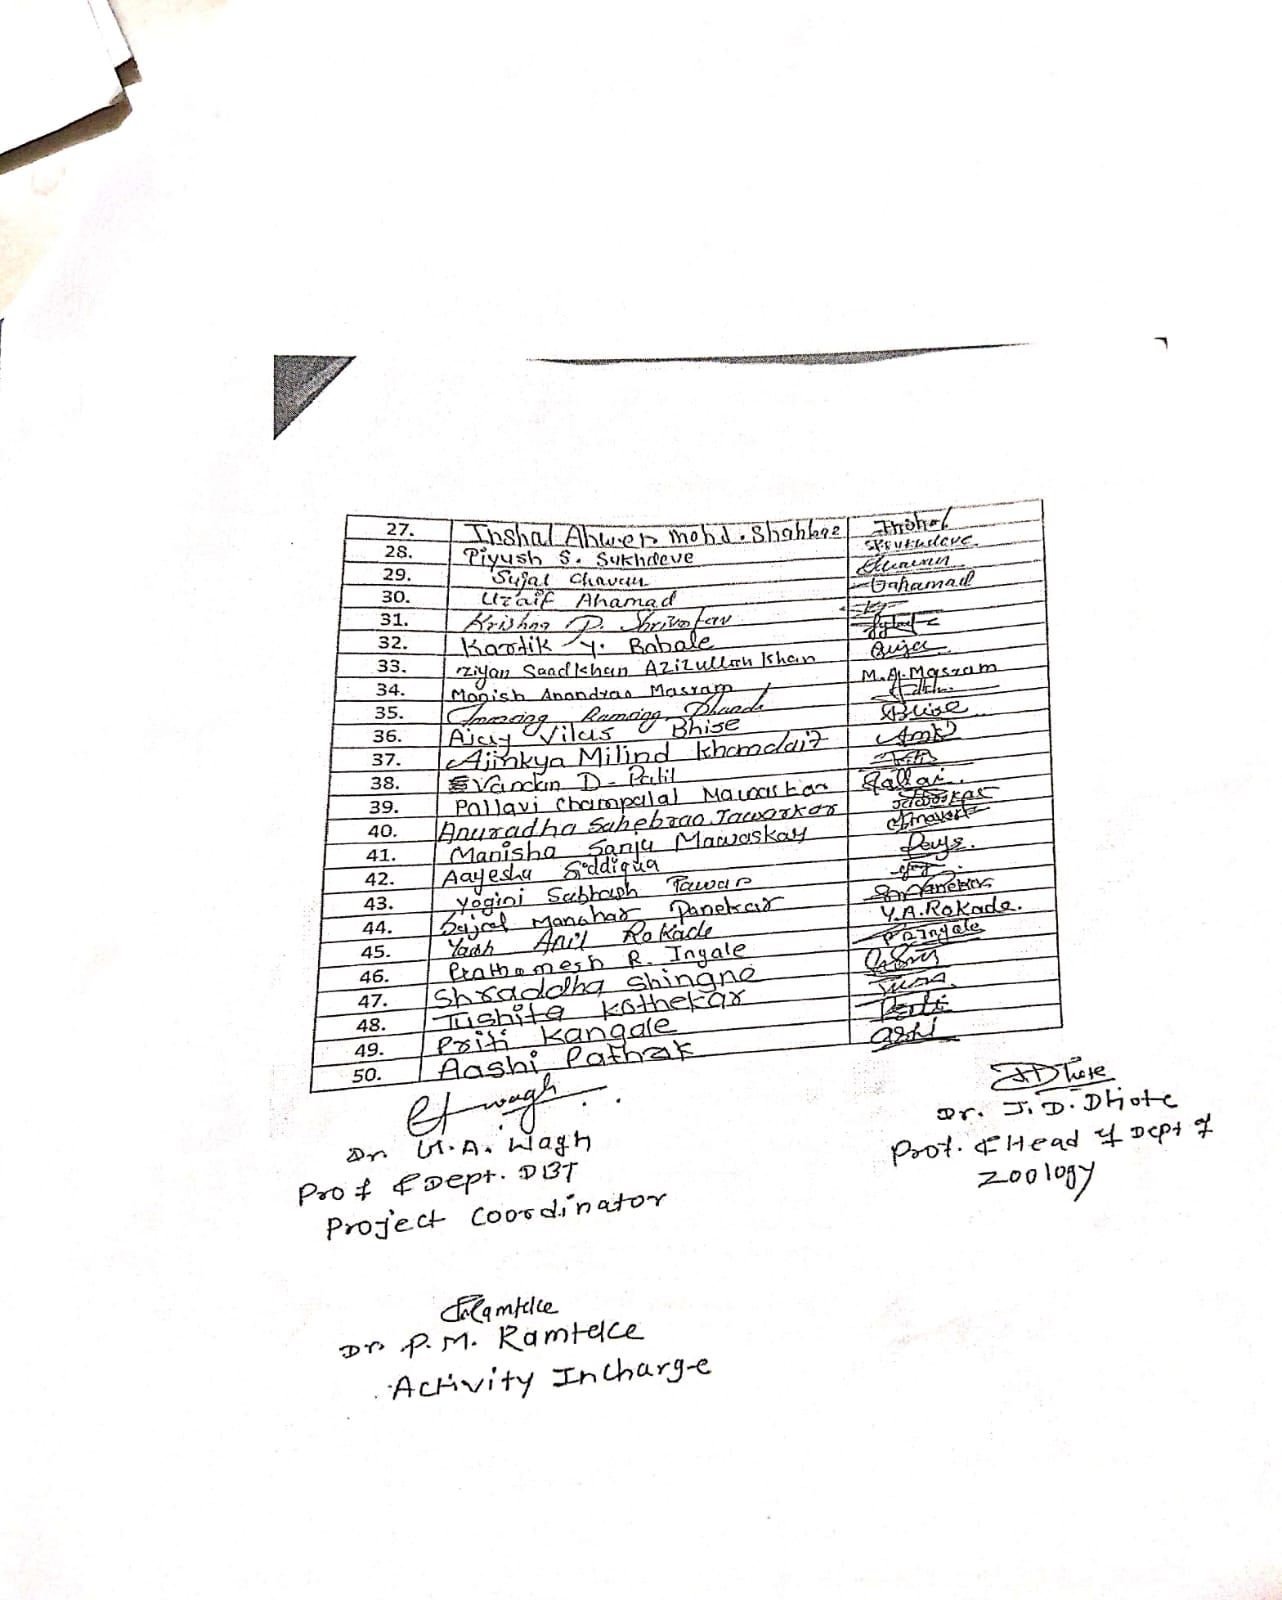 27. Inshal Ahwer mohd. Shahbaz Inshal
28. Piyush S. Sukhdeve SPSukhdeve
29. Sujal Chavan
30. Uzaif Ahamad Uahamad
31. Krishna P. Shrivastav
32. Kartik Y. Babale
33. Ziyan Saadkhan Azizullah Khan
34. Manish Anandrao Masram M.A.Masram
35.
36. Ajay Vilas Bhise ABhise
37. Ajinkya Milind Khandait
38. Vandan D. Patil
39. Pallavi Champalal Mawaskar Pallavi
40. Anuradha Sahebrao Jaworkar
41. Manisha Sanju Mawaskar
42. Aayesha Siddiqua
43. Yogini Subhash Pawar
44. Sajal Manohar Panekar
45. Yash Anil Rokade Y.A.Rokade.
46. Prathamesh R. Ingale PRIngale
47. Shraddha Shingne
48. Tushita Kathekar
49. Priti Kangale
50. Aashi Pathak ashi
Wagh
Dr. J.D. Dhote
Prof. & Head of Dept of
Zoology
Dr U.A. Wagh
Prof & Dept. DBT
Project Coordinator
Ramteke
Dr P.M. Ramteke
Activity Incharge